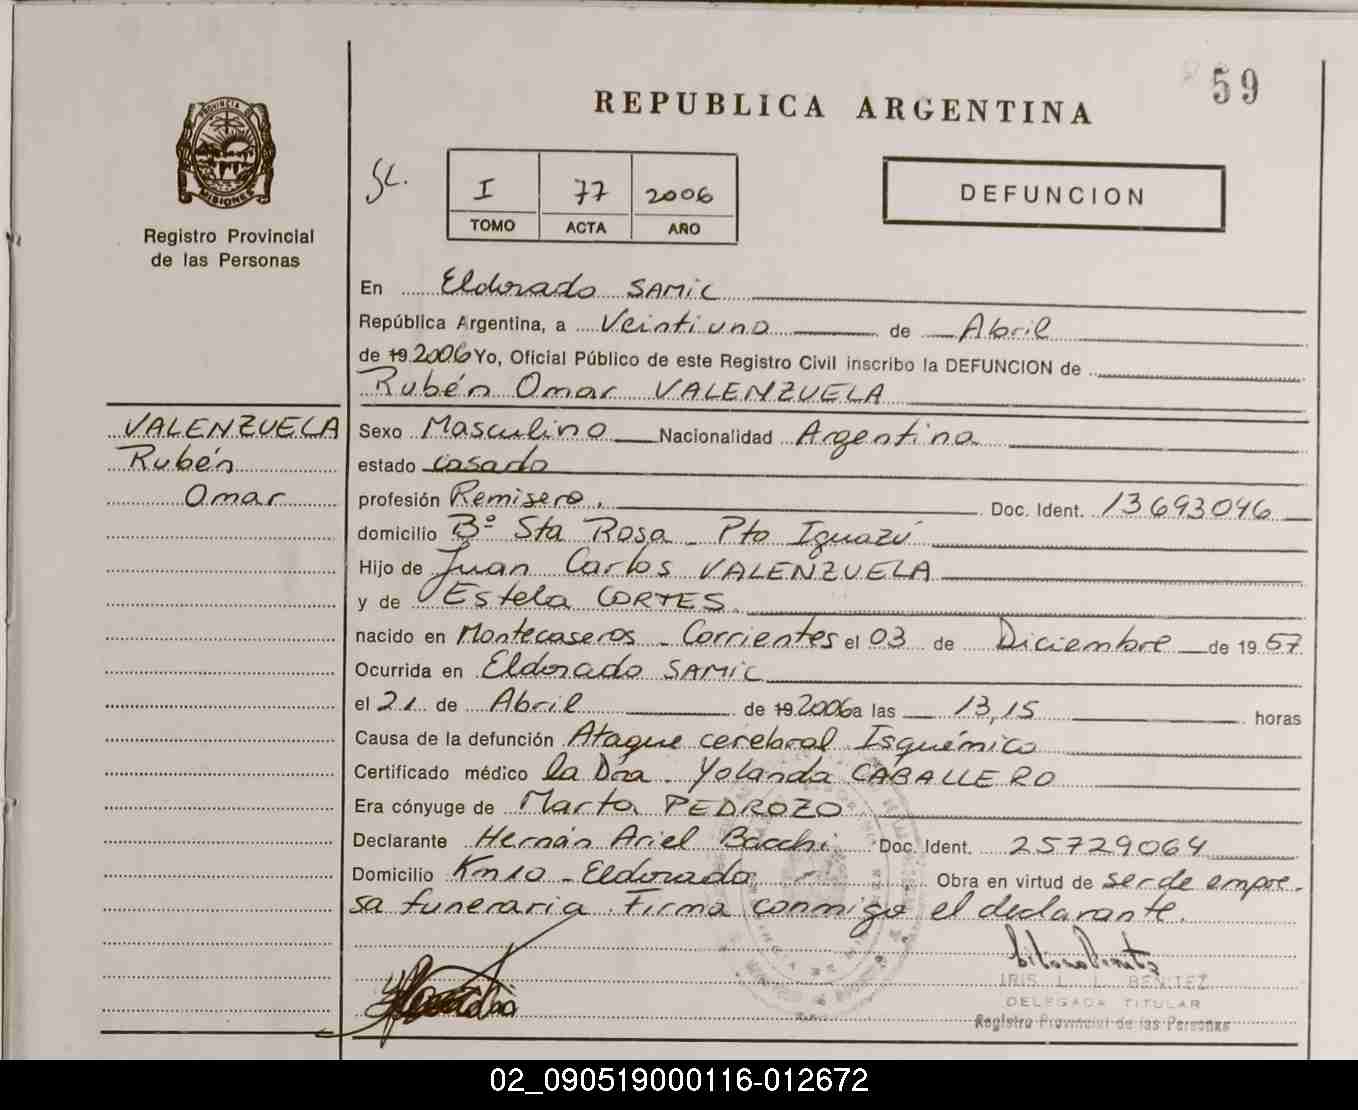 59
REPUBLICA ARGENTINA
PROVINCIA DE
MISIONES
Registro Provincial
de las Personas
I 77 2006
TOMO ACTA AÑO
DEFUNCION
En Eldorado SAMIC
República Argentina, a Veintiuno de Abril
de 19 2006 Yo, Oficial Público de este Registro Civil inscribo la DEFUNCION de
Rubén Omar VALENZUELA
VALENZUELA
Rubén
Omar
Sexo Masculino Nacionalidad Argentina
estado casado
profesión Remisero. Doc. Ident. 13693046
domicilio Bº Sta Rosa - Pto Iguazú
Hijo de Juan Carlos VALENZUELA
y de Estela CORTES.
nacido en Montecaseros - Corrientes el 03 de Diciembre de 19 57
Ocurrida en Eldorado SAMIC
el 21 de Abril de 19 2006 a las 13,15 horas
Causa de la defunción Ataque cerebral Isquémico
Certificado médico la Dra. Yolanda CABALLERO
Era cónyuge de Marta PEDROZO
Declarante Hernán Ariel Bacchi Doc. Ident. 25729064
Domicilio Km 10 - Eldorado Obra en virtud de ser de empre-
sa funeraria. Firma conmigo el declarante.
IRIS L. BENITEZ
DELEGADA TITULAR
Registro Provincial de las Personas
02_090519000116-012672